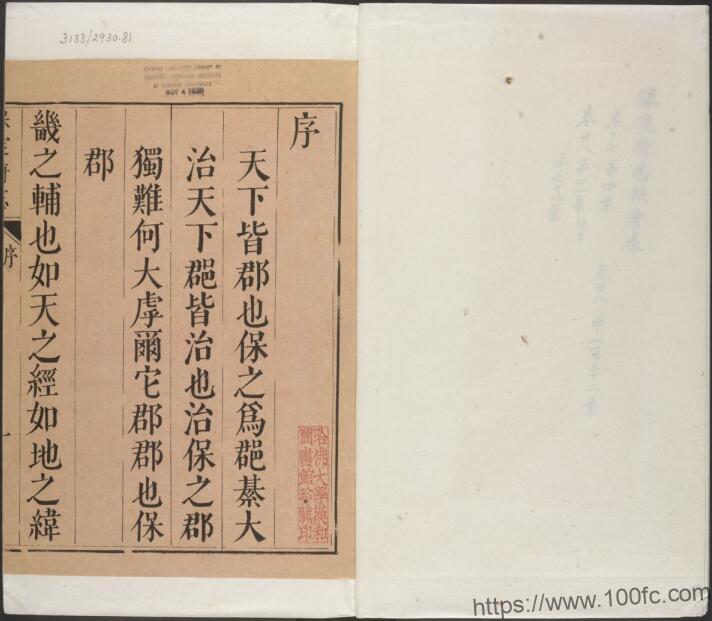 3133/2930.81
CHINESE-JAPANESE LIBRARY OF
HARVARD-YENCHING INSTITUTE
AT HARVARD UNIVERSITY
NOV 4 1936
序
天下皆郡也保之爲郡綦大
治天下郡皆治也治保之郡
獨難何大虖爾它郡郡也保
郡
畿之輔也如天之經如地之緯
保定府志
序
一
哈佛大學漢和
圖書館珍藏印
https://www.100fc.com